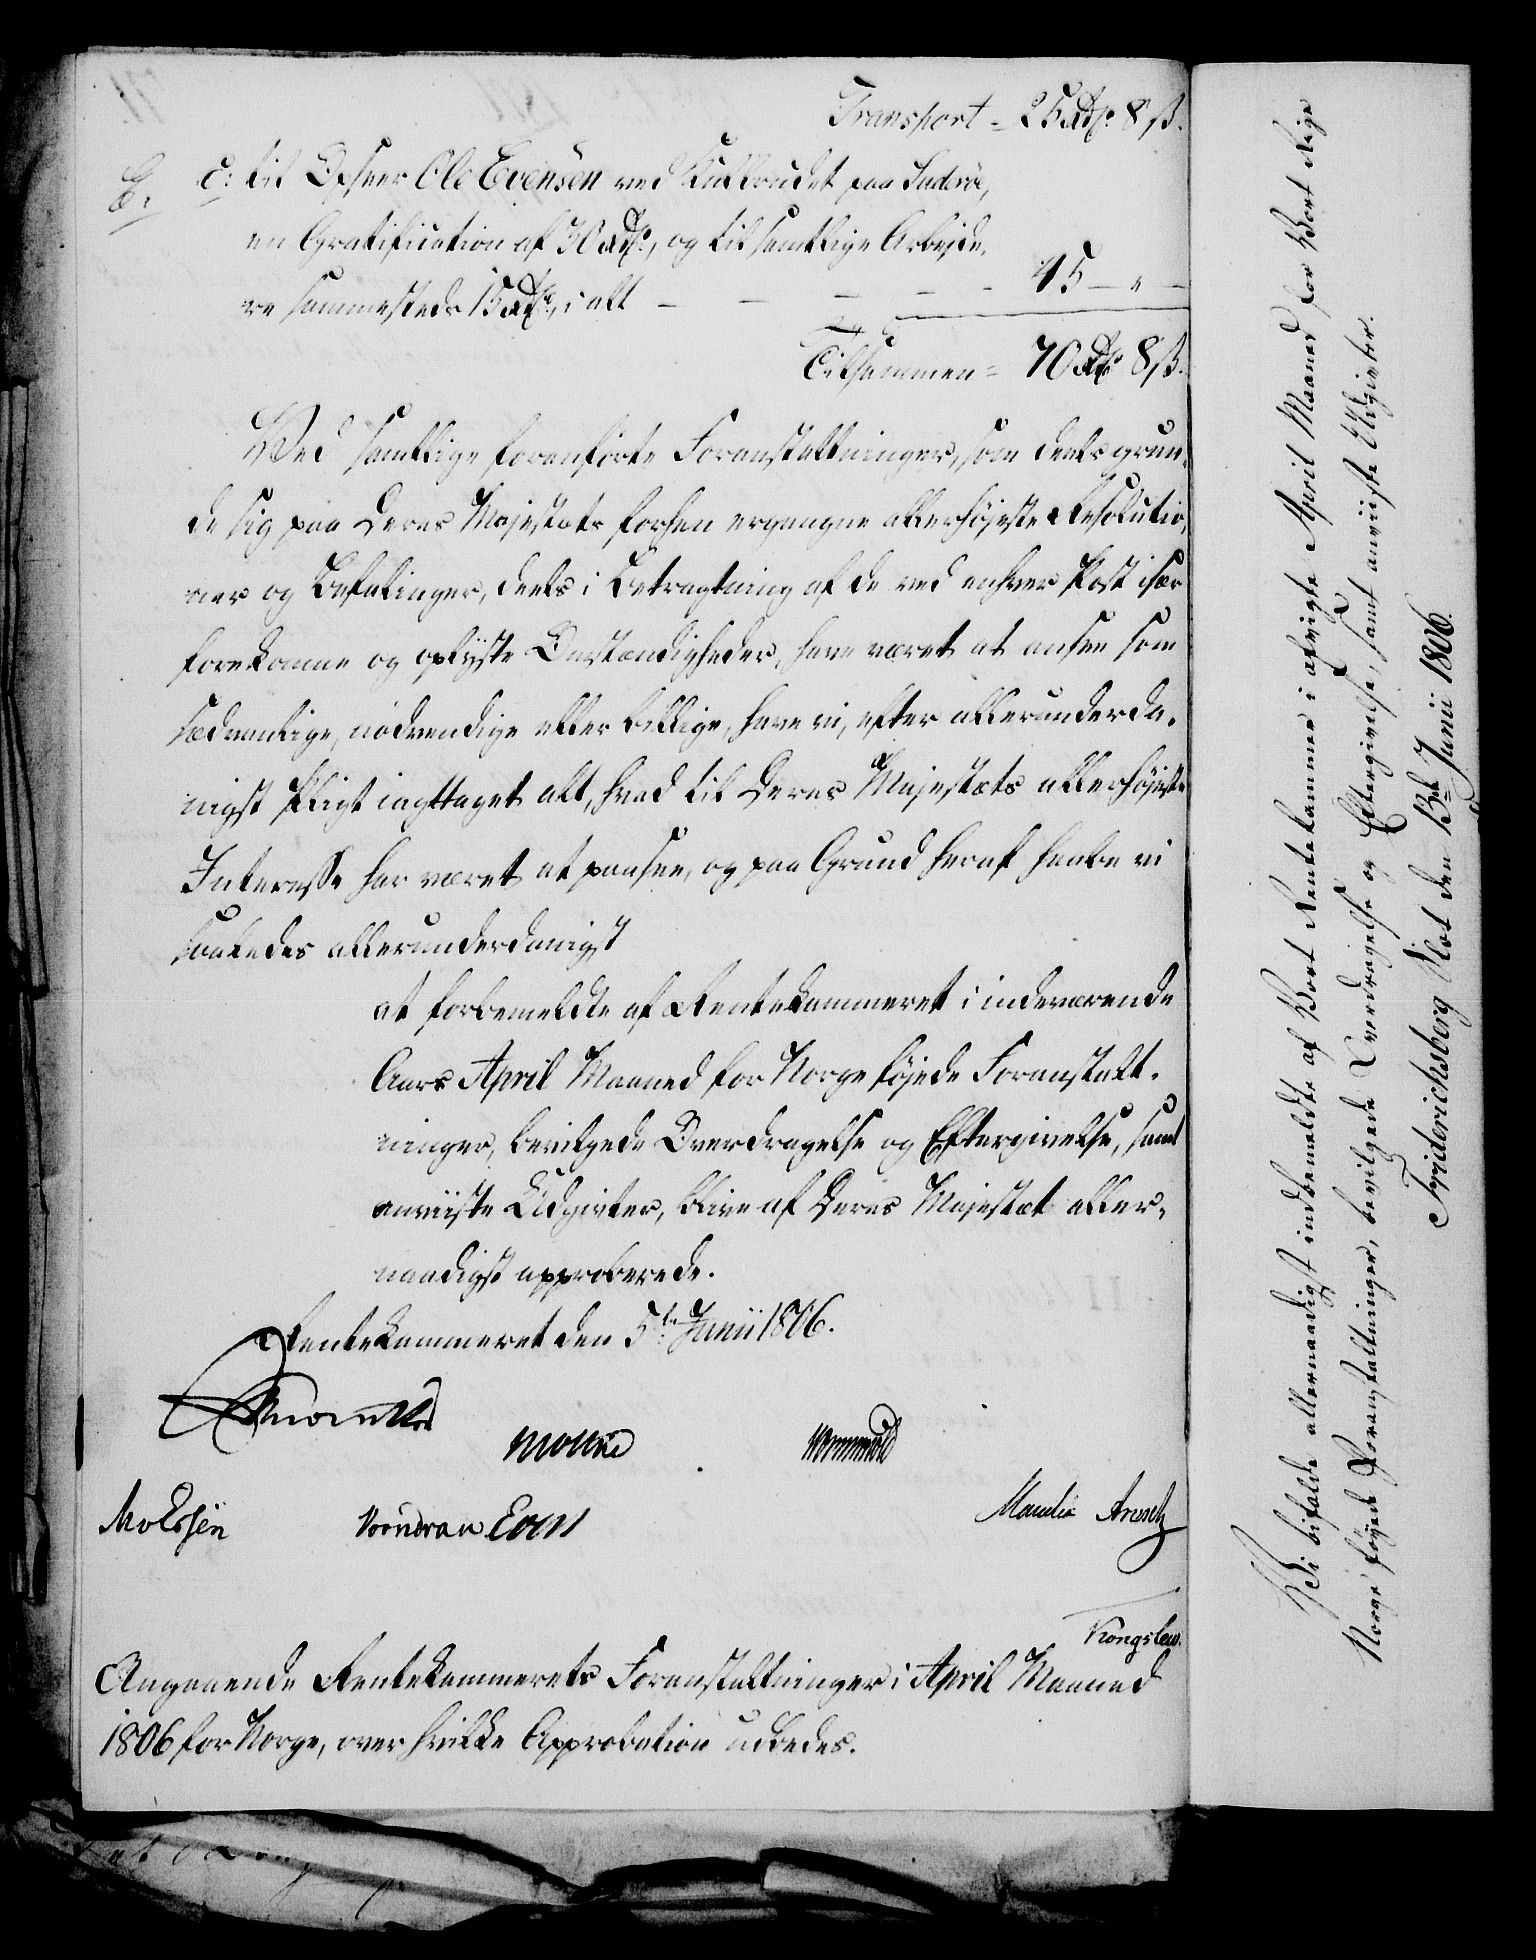 Transport = 25 Rdr. 8 ß.
E. c: til Opseer Ole Evensen ved Kulbrudet paa Suderøe,
en Gratification af 30 Rdr., og til samtlige Arbeide,
re sammesteds 15 Rdr., i alt – – – – – 45 – " –
Tilsammen = 70 Rdr. 8 ß.
Ved samtlige foranførte Foranstaltninger, som deels grun,
de sig paa Deres Majestæts forhen ergangne allerhøjeste Resolutio,
ner og Befalinger, deels i Betragtning af de ved enhver Post især
forekomne og oplyste Omstændigheder, have været at ansee som
sædvanlige, nødvendige eller billige, have vi, efter allerunderda,
nigst Pligt iagttaget alt, hvad til Deres Majestæts allerhøjeste
Interesse har været at paasee, og paa Grund heraf henbe vi
saaledes allerunderdanigst
at forbemeldte af Rentekammeret i indeværende
Aars April Maaned for Norge føjede Foranstalt,
ninger, bevilgede Overdragelse og Eftergivelse, samt
anviiste Udgivter, blive af Deres Majestæt aller,
naadigst approberede.
Rentekammeret den 5te Junii 1806.
Molthe Wormskiold
Vorndran Evers
Kongslew.
Angaaende Rentekammerets Foranstaltninger i April Maaned
1806 for Norge, over hvilke Approbation udbedes.
Vi bifalde allernaadigst indbemeldte af Vort Rentekammer i afvigte April Maaned for Vort Rige
Norge føjede Foranstaltninger, bevilgede Overdragelse og Eftergivelse, samt anviiste Udgivter.
Friderichsberg Slot den 13de Junii 1806.